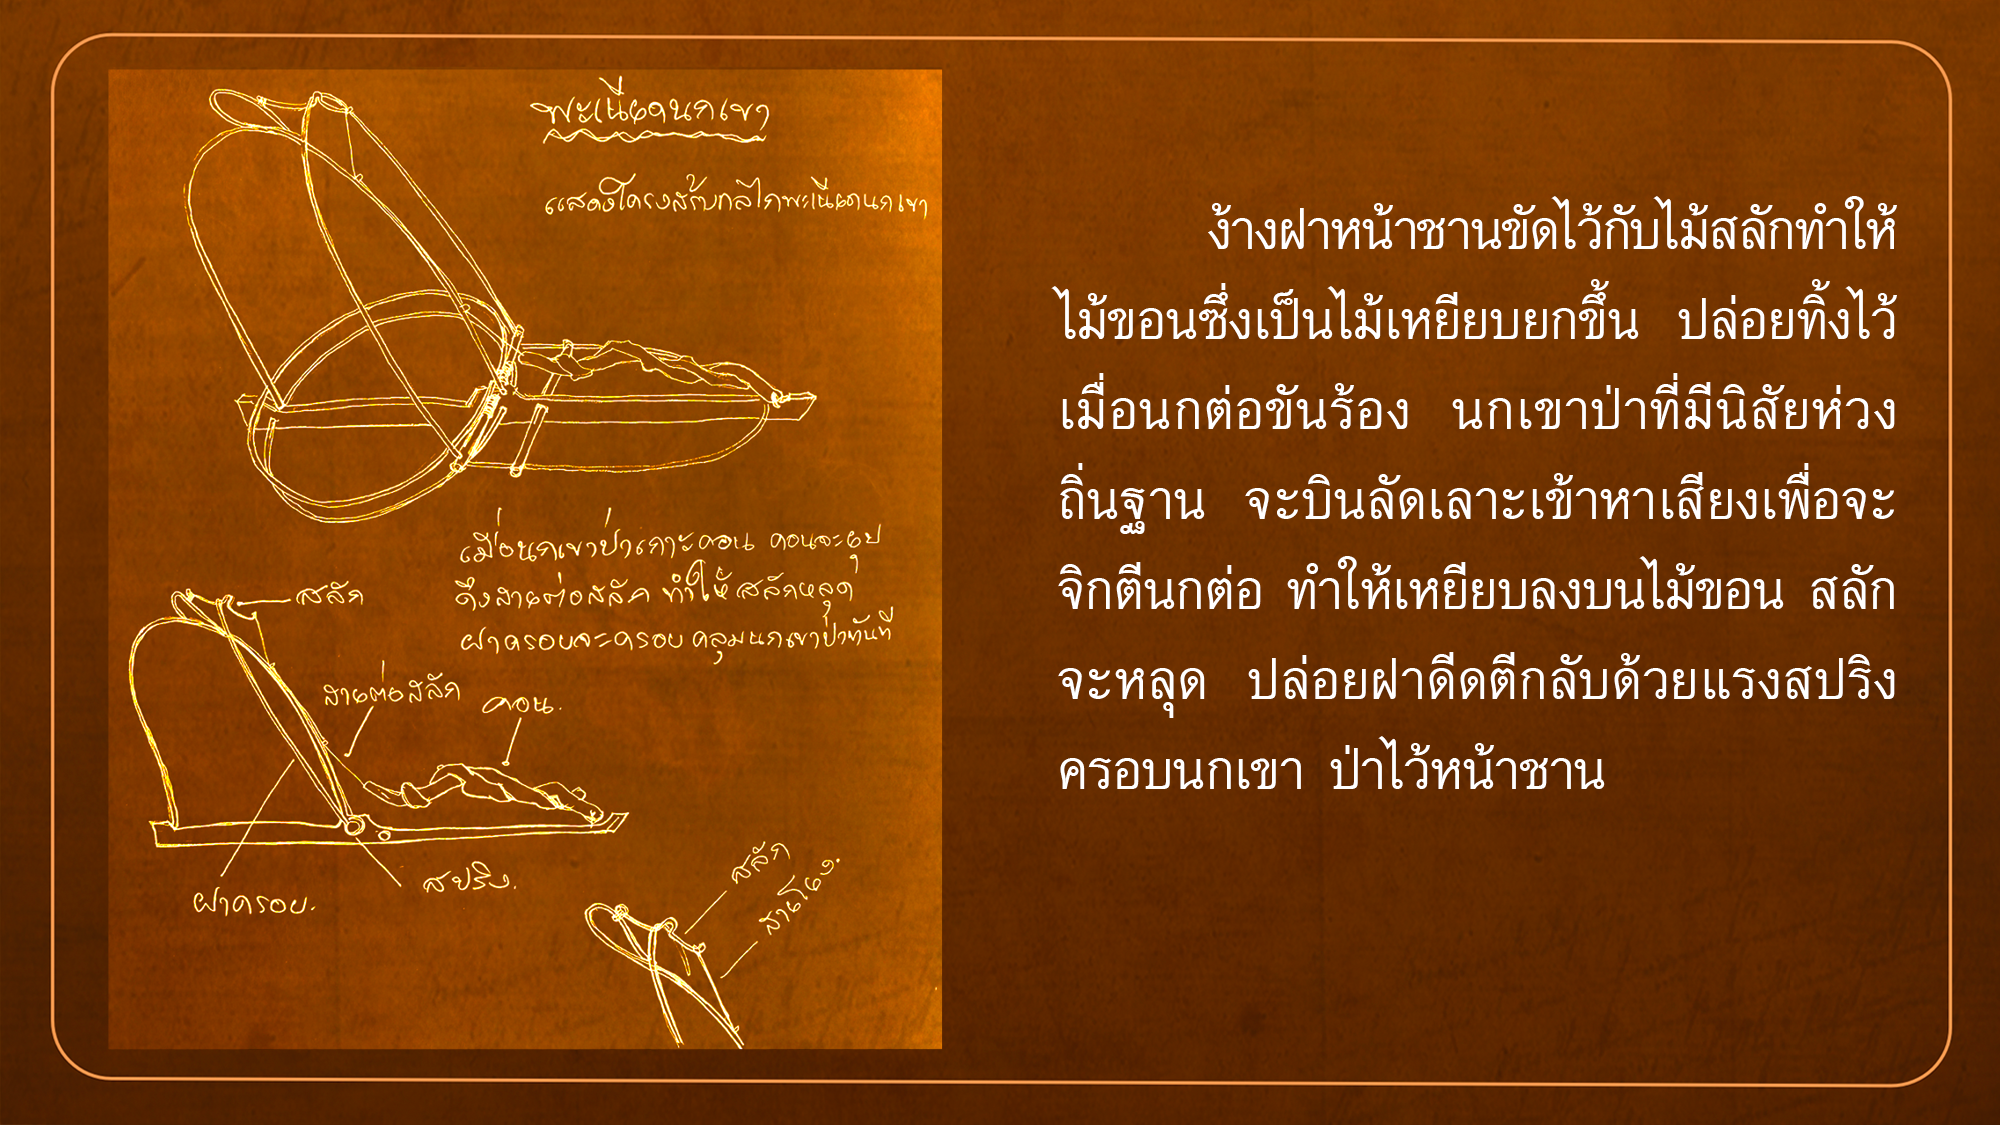 พะเนียดนกเขา
แสดงโครงสร้างกลไกพะเนียดนกเขา
เมื่อนกเขาป่าเกาะคอน คอนจะยุบ
ดึงสายต่อสลัก ทำให้สลักหลุด
ฝาครอบจะครอบคลุมนกเขาป่าทันที
สลัก
สายต่อสลัก
คอน.
ฝาครอบ.
สปริง.
สลัก
สายโยง.
ง้างฝาหน้าชานขัดไว้กับไม้สลักทำให้
ไม้ขอนซึ่งเป็นไม้เหยียบยกขึ้น ปล่อยทิ้งไว้
เมื่อนกต่อขันร้อง นกเขาป่าที่มีนิสัยห่วง
ถิ่นฐาน จะบินลัดเลาะเข้าหาเสียงเพื่อจะ
จิกตีนกต่อ ทำให้เหยียบลงบนไม้ขอน สลัก
จะหลุด ปล่อยฝาดีดตีกลับด้วยแรงสปริง
ครอบนกเขา ป่าไว้หน้าชาน